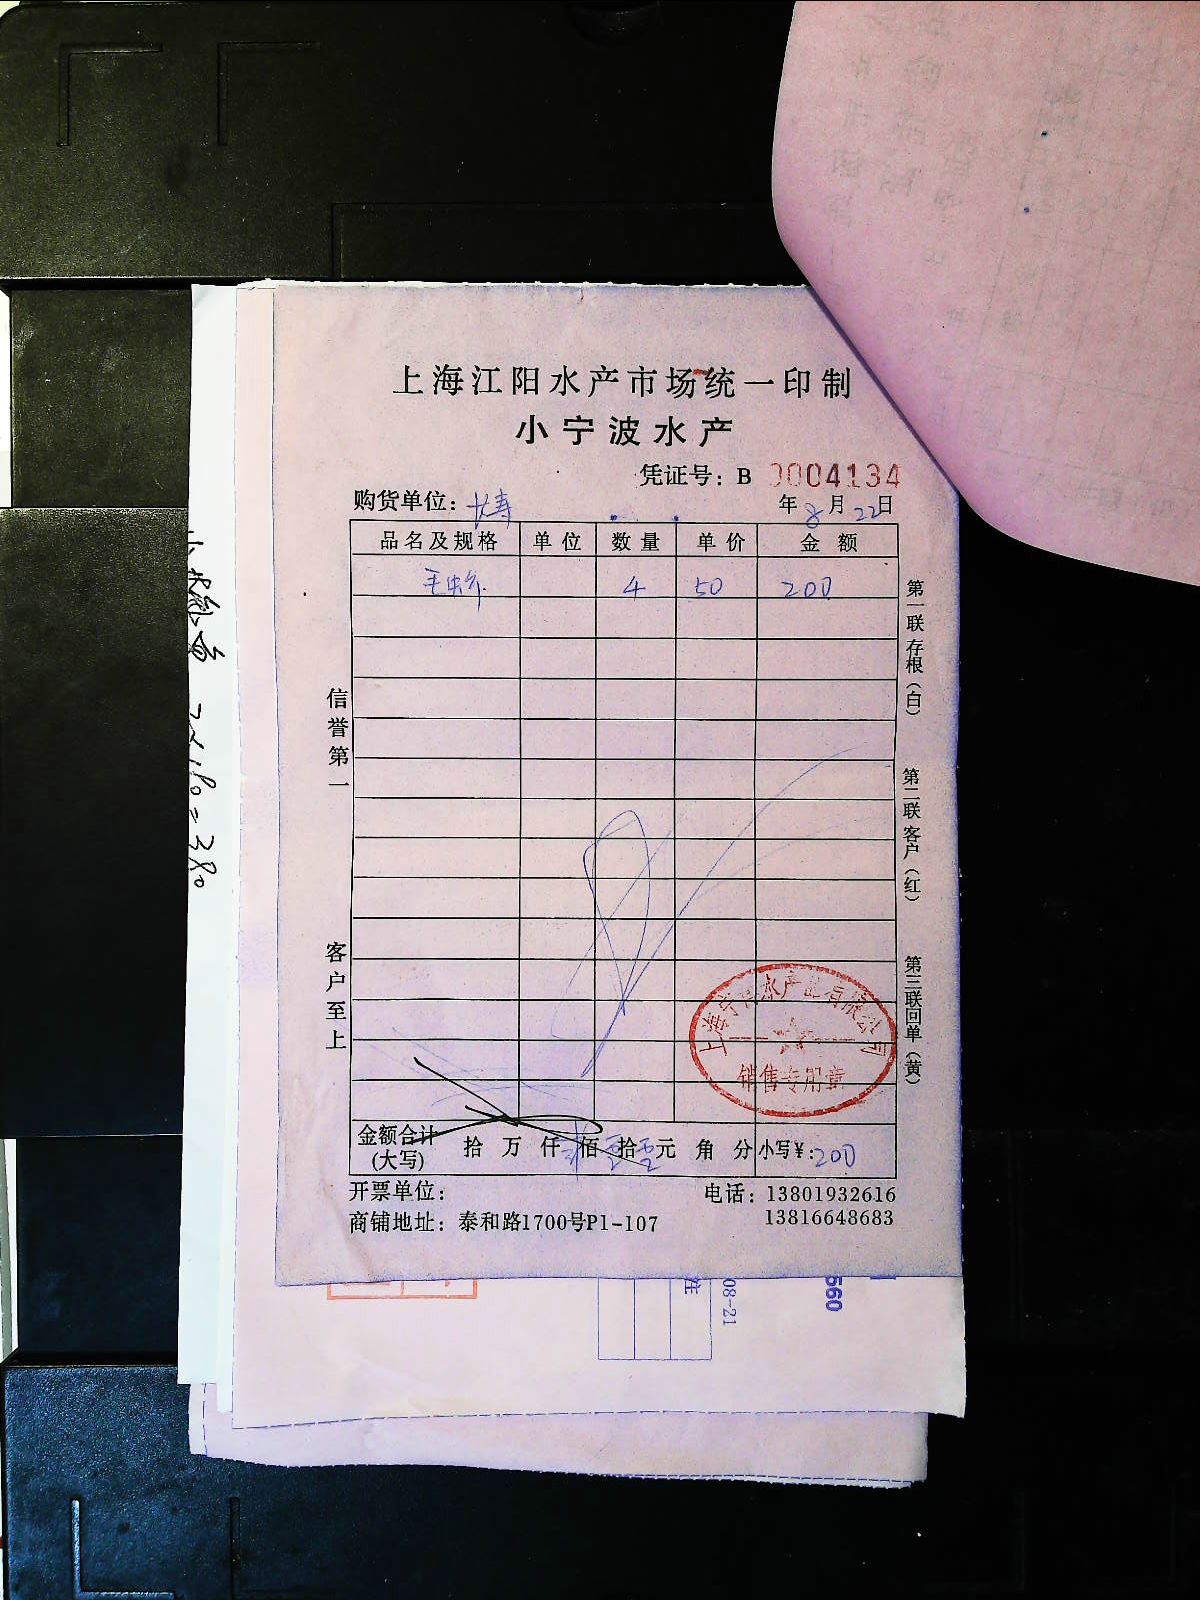 上海江阳水产市场统一印制
小宁波水产
凭证号：B 0004134
购货单位：长寿 年8月22日
品名及规格 单位 数量 单价 金额
毛蚶 4 50 200
信誉第一
客户至上
第一联存根（白）
第二联客户（红）
第三联回单（黄）
销售专用章
金额合计(大写) 拾 万 仟 佰 拾 元 角 分 小写¥：200
开票单位： 电话：13801932616
商铺地址：泰和路1700号P1-107 13816648683
08-21
560
注
=380